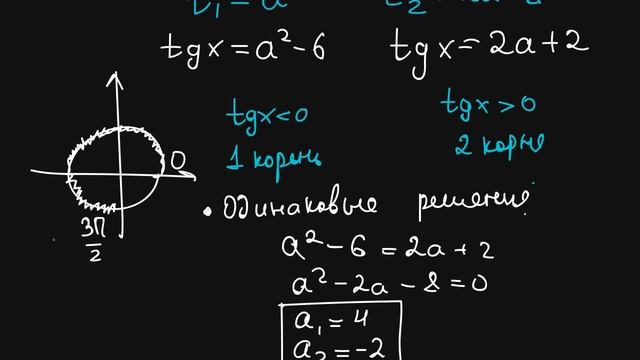 tgx = a² - 6
tgx = 2a + 2
tgx < 0
1 корень
tgx > 0
2 корня
0
3П/2
• Одинаковые решения:
a² - 6 = 2a + 2
a² - 2a - 8 = 0
a₁ = 4
a₂ = -2